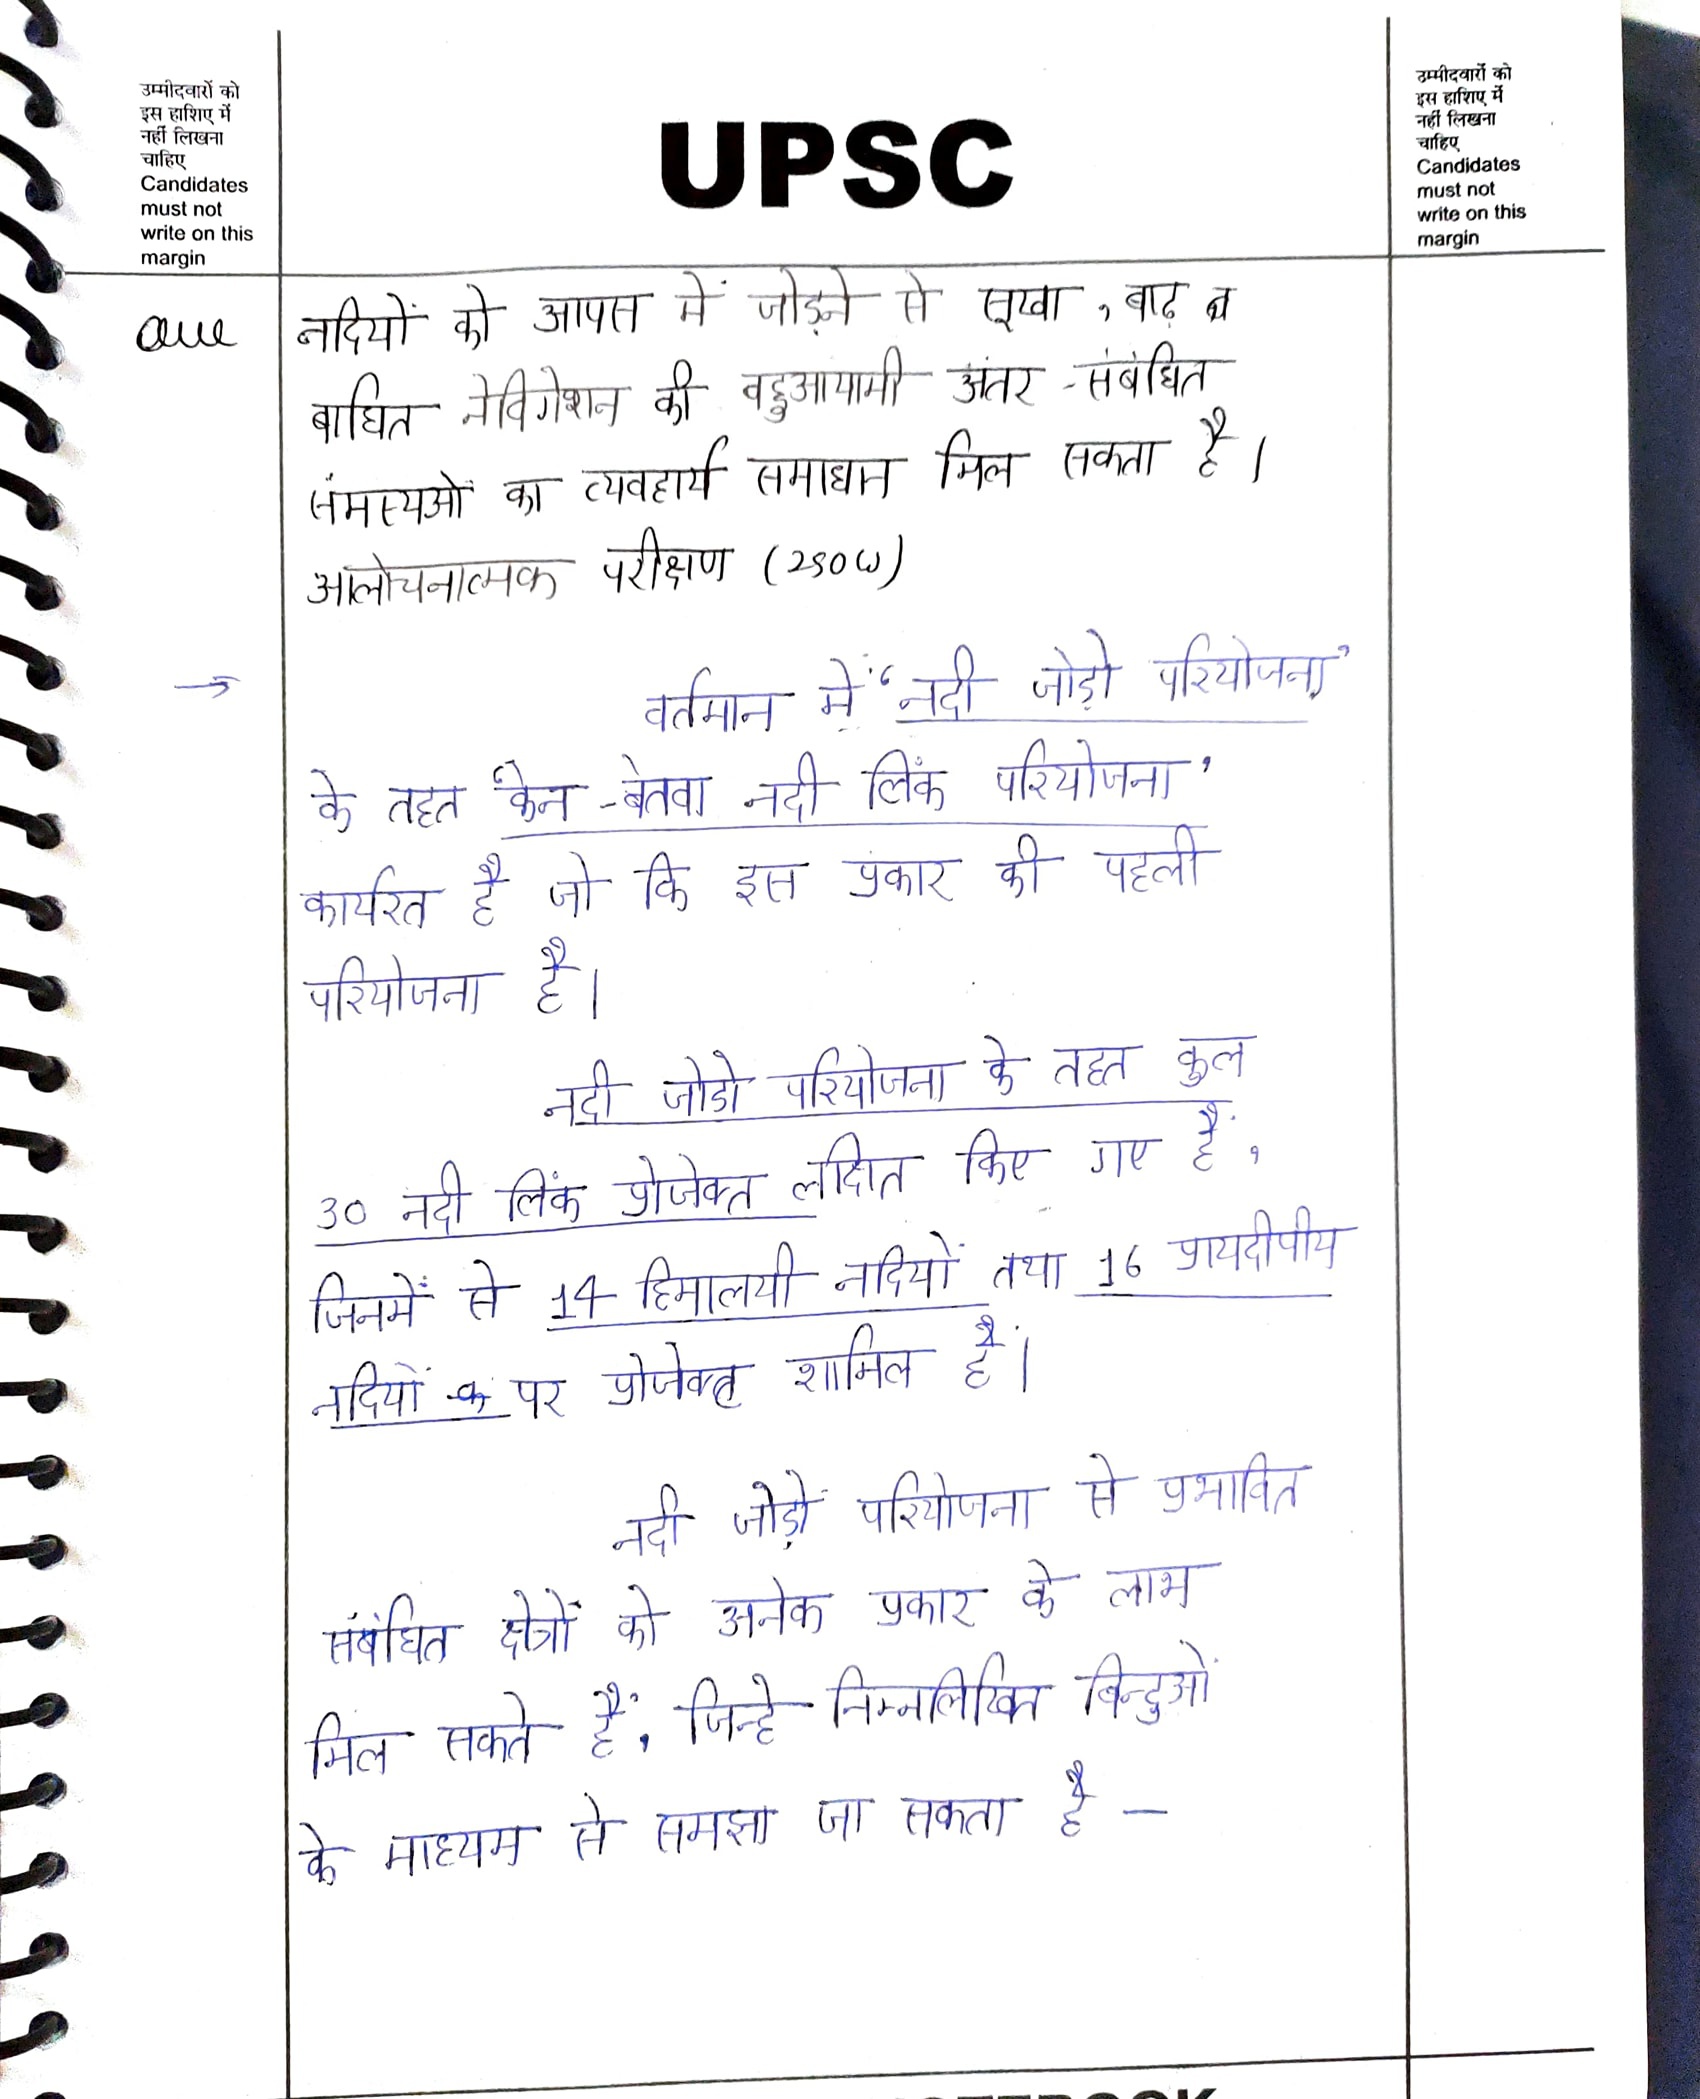 उम्मीदवारों को
इस हाशिए में
नहीं लिखना
चाहिए
Candidates
must not
write on this
margin
UPSC
उम्मीदवारों को
इस हाशिए में
नहीं लिखना
चाहिए
Candidates
must not
write on this
margin
Que नदियों को आपस में जोड़ने से सूखा, बाढ़ व
बाधित नेविगेशन की बहुआयामी अंतर-संबंधित
संमस्यओं का व्यवहार्य समाधान मिल सकता है।
आलोचनात्मक परीक्षण (250W)
→ वर्तमान में 'नदी जोड़ो परियोजना'
के तहत 'केन-बेतवा नदी लिंक परियोजना'
कार्यरत है जो कि इस प्रकार की पहली
परियोजना है।
नदी जोडो परियोजना के तहत कुल
30 नदी लिंक प्रोजेक्त लक्षित किए गए हैं,
जिनमें से 14 हिमालयी नदियों तथा 16 प्रायदीपीय
नदियों पर प्रोजेक्ट शामिल हैं।
नदी जोड़ों परियोजना से प्रभावित
संबंधित क्षेत्रों को अनेक प्रकार के लाभ
मिल सकते हैं, जिन्हे निम्नलिखित बिन्दुओं
के माध्यम से समझा जा सकता है –